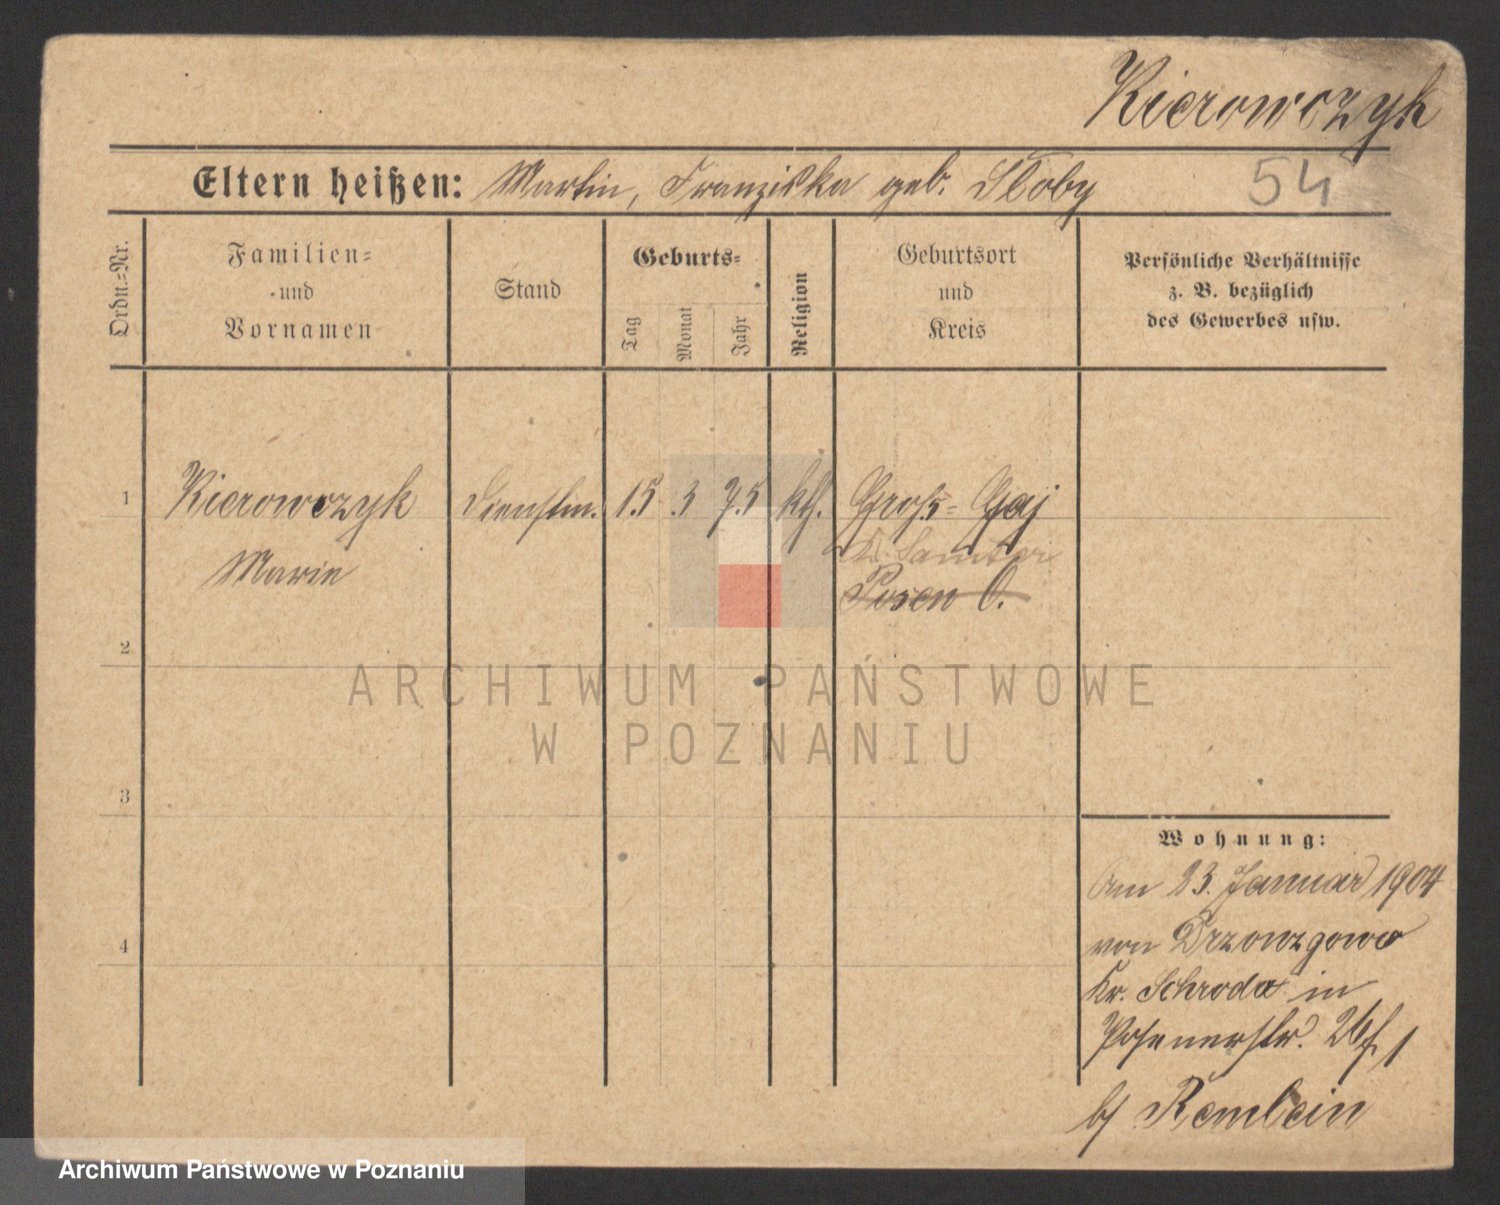 Kierowczyk
Eltern heißen: Martin, Franziska geb. Skoby
54
Ordn.=Nr.
Familien=
und
Vornamen
Stand
Geburts=
Tag
Monat
Jahr
Religion
Geburtsort
und
Kreis
Persönliche Verhältnisse
z. B. bezüglich
des Gewerbes usw.
1
Kierowczyk
Marie
Dienstm.
15
3
75
kth.
Gross=Gaj
Kr. Samter
Posen O.
2
3
4
ARCHIWUM PAŃSTWOWE
W POZNANIU
Wohnung:
Am 23. Januar 1904
von
Kr. Schroda in
Posenerstr. 26
b/
Archiwum Państwowe w Poznaniu